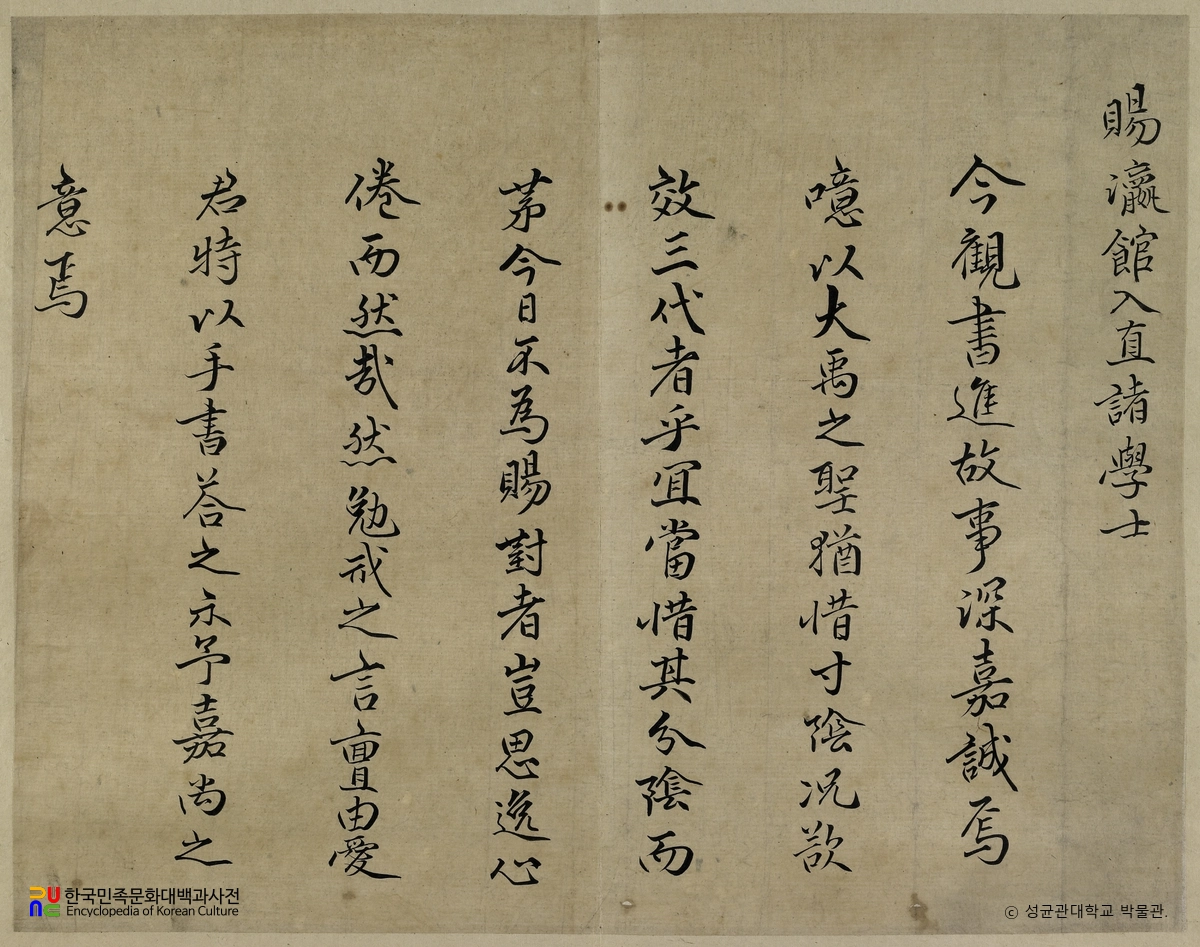 賜瀛館入直諸學士
今觀書進故事深嘉誠焉
噫以大禹之聖猶惜寸陰况欲
效三代者乎冝當惜其分陰而
茅今日不為賜對者豈思逸心
倦而然哉然勉戒之言亶由愛
君特以手書荅之示予嘉尚之
意焉
한국민족문화대백과사전
Encyclopedia of Korean Culture
ⓒ 성균관대학교 박물관.